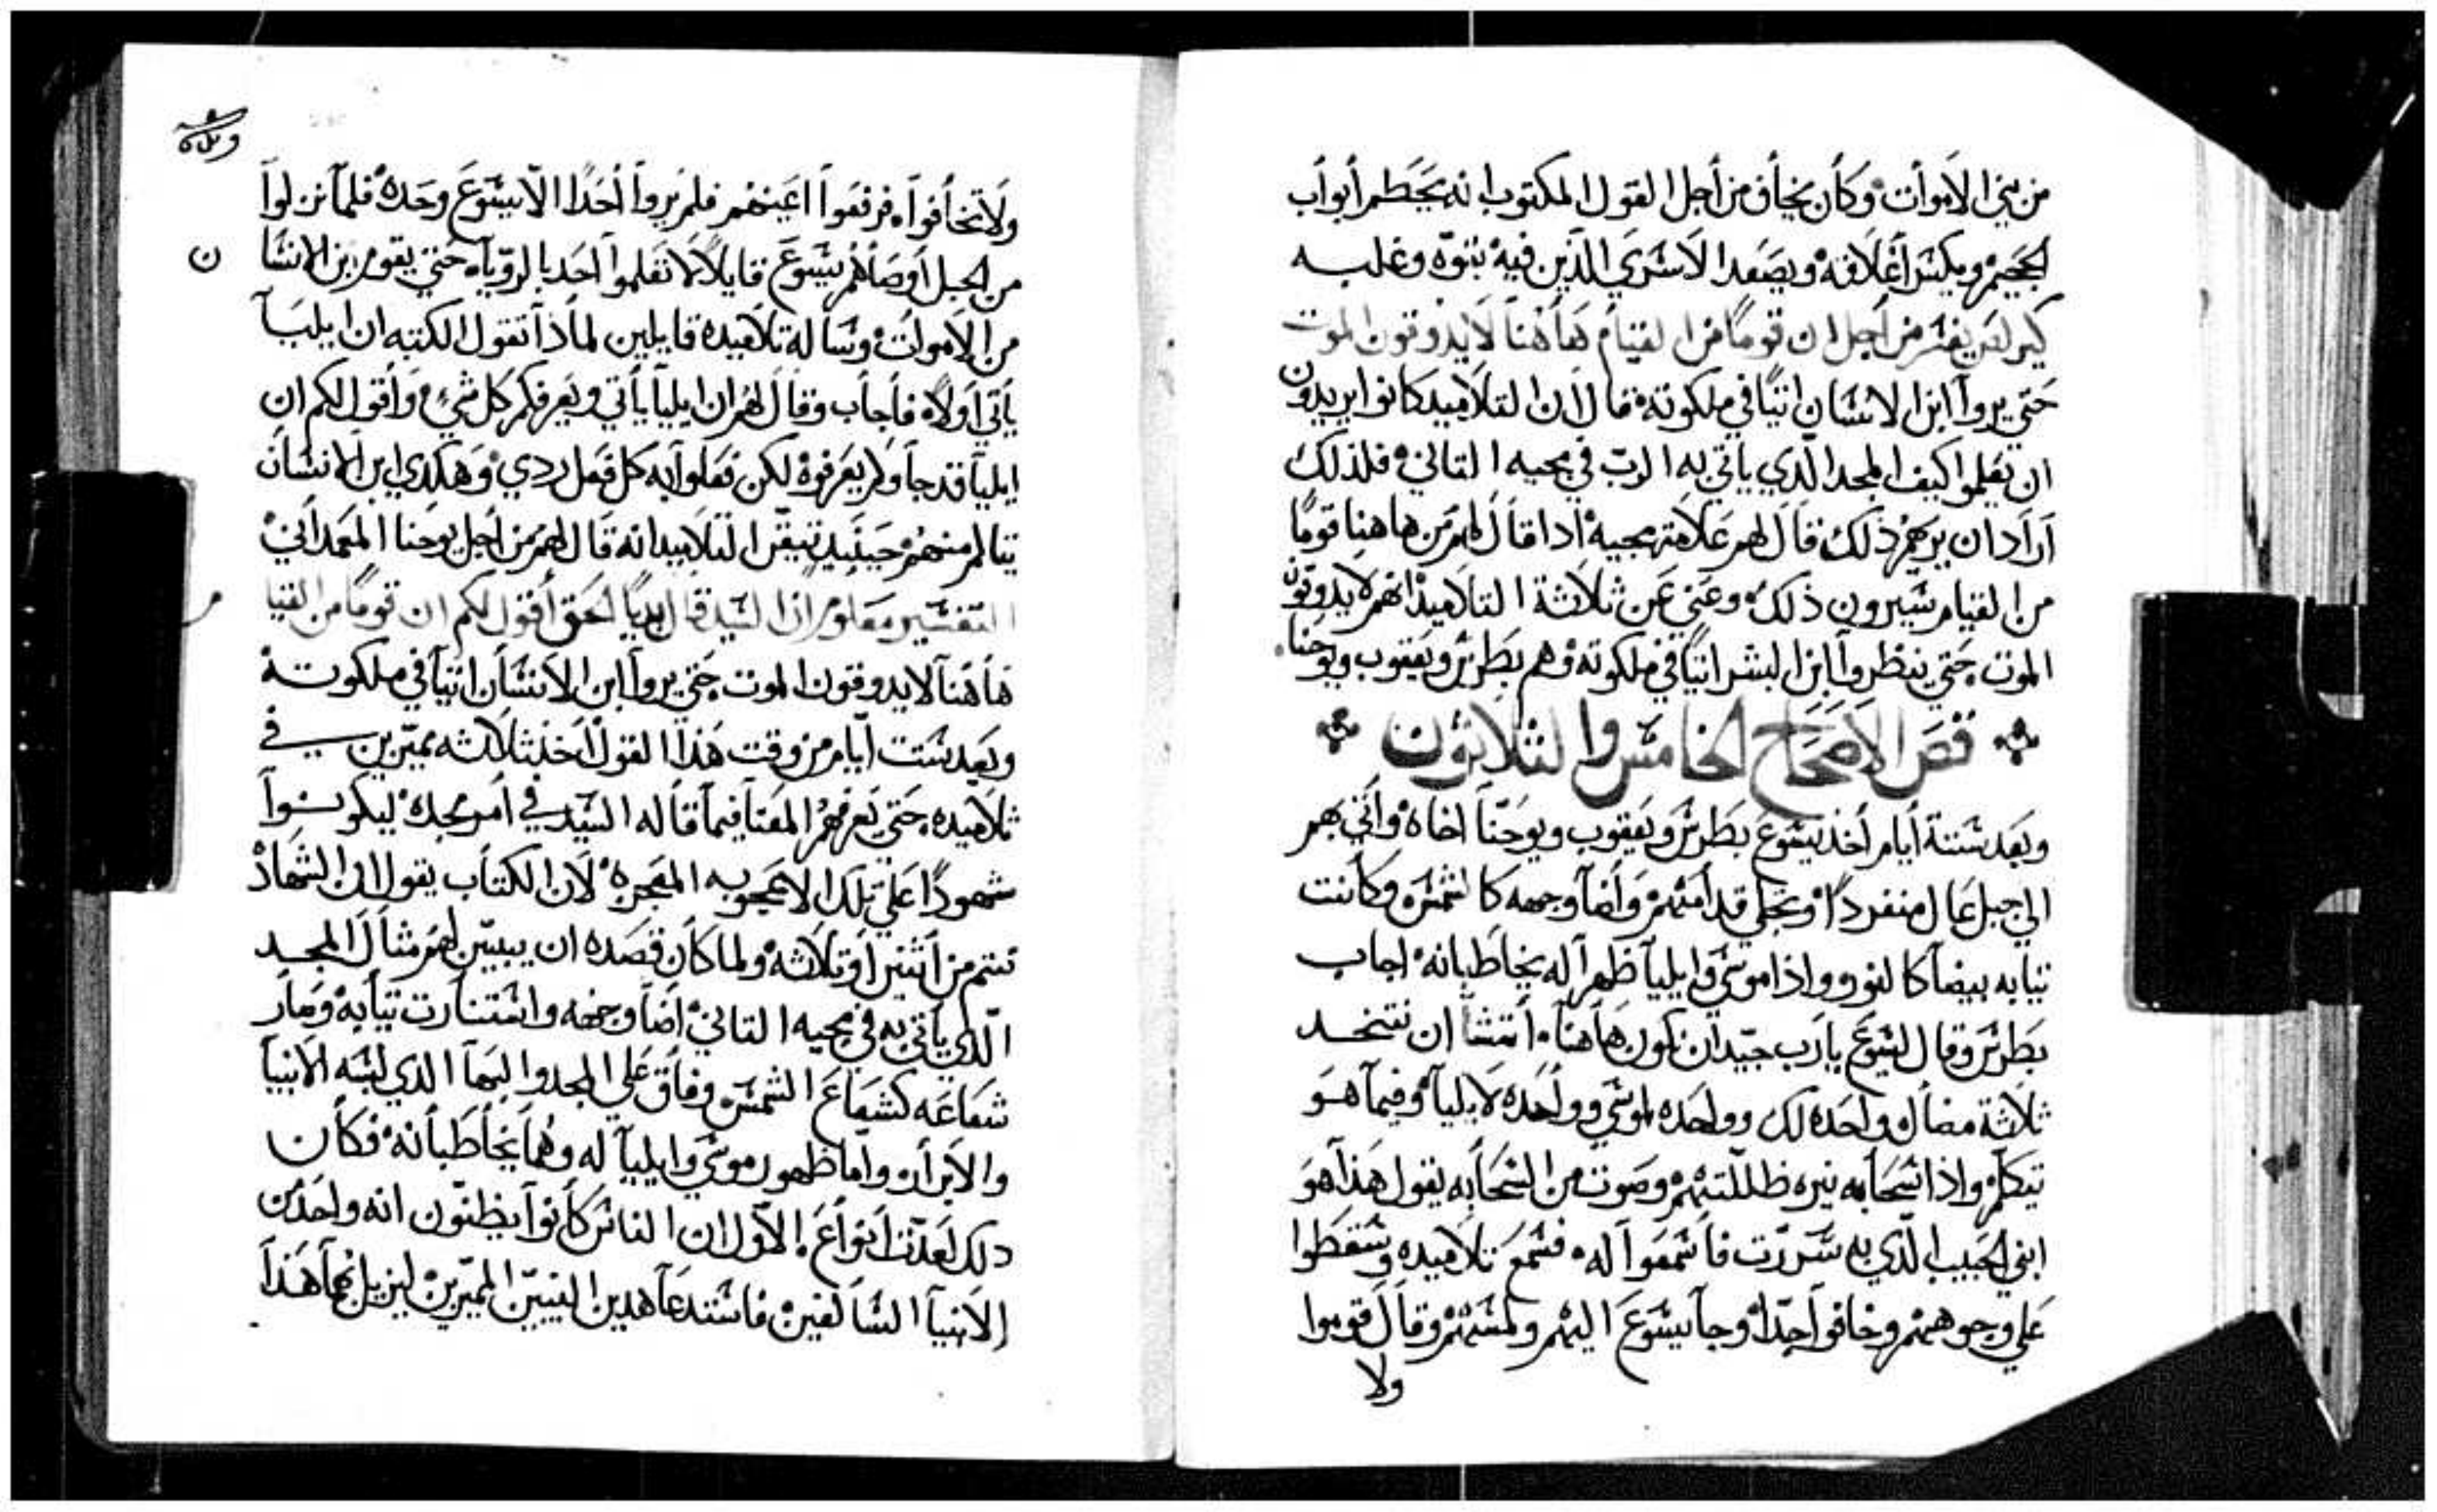 من بني الاموات وكان يخاف من أجل القول المكتوب انه يحطم أبواب
الجحيم ويكسر أغلاقه ويصعد الاسرى الذين فيه بقوه وغلبه
لم يفسر من أجل ان قوما من القيام هاهنا لا يدوقون الموت
حتي يروا ابن الانسان اتيا في ملكوته قال ان التلاميد كانوا يريدون
ان تعلموا كيف المجد الدي ياتي به الرب في مجيه التاني فلذلك
أراد ان يريهم ذلك فقال لهم علامة مجيه ادا قال لهم من هاهنا قوما
من القيام سيرون ذلك وعني عن ثلاثة التلاميذ انهم لا يدوقون
الموت حتي ينظروا ابن البشر اتيا في ملكوته وهم بطرس ويعقوب ويوحنا
فص الاصحاح الخامس والثلاثون
وبعد ستة أيام أخذ يسوع بطرس ويعقوب ويوحنا اخاه وأتي بهم
الي جبل عال منفردا وتجلي قدامهم وأضا وجهه كالشمس وكانت
تيابه بيضا كالنور وواذا موسي وايليا ظهرا له يخاطبانه اجاب
بطرس وقال ليسوع يارب جيد ان نكون هاهنا اتشا ان نتخد
ثلاثة مضال واحده لك وواحده لموسي وواحده لايليا وفيما هو
يتكلم واذا سحابه نيره ظللتهم وصوت من السحابه يقول هذا هو
ابني الحبيب الدي به سررت فاسمعوا له فسمع تلاميده وسقطوا
علي وجوههم وخافوا جدا وجا يسوع اليهم ولمسهم وقال قوموا
ولا
ولا تخافوا فرفعوا اعينهم فلم يروا أحدا الا يسوع وحده فلما نزلوا
من الجبل أوصاهم يسوع قايلا لا تعلموا أحد بالرويا حتي يقوم ابن الانسا
ن
من الاموات وسا له تلاميده قايلين لماذا تقول الكتبه ان ايليا
يأتي أولا فأجاب وقال لهم ان ايليا يأتي ويعرفكم كل شي وأقول لكم ان
ايليا قد جا ولم يعرفوه لكن فعلوا به كل فعل ردي وهكدي ابن الانسان
يتالم منهم حينيد تيقن التلاميد انه قال لهم من اجل يوحنا المعمداني
التفسير معلوم ان السيد قال بديا الحق أقول لكم ان قوما من القيا
م
هاهنا لا يدوقون الموت حتي يروا ابن الانسان اتيا في ملكوته
وبعد ستت أيام من وقت هذا القول أخذ ثلاثه مميزين في
تلاميده حتي يعرفهم المعنا فيما قاله السيد في أمر مجده ليكونوا
شهودا علي تلك الاعجوبه المعجزه لان الكتاب يقول ان الشهاد
تتم من أثنين أو ثلاثه ولما كان قصده ان يبين لهم مثال المجد
الدي يأتي به في مجيه التاني أضا وجهه واستنارت تيابه وصار
شعاعه كشعاع الشمس وفاق علي المجد والبها الدي لبسه الانبيا
والابرار واما ظهور موسي وايليا له وهما يخاطبانه فكان
دلك لعدت أنواع الاول ان الناس كانوا يظنون انه واحد من
الانبيا السالفين فاستدعا هدين النبيين المميزين ليزيل بهما هذا